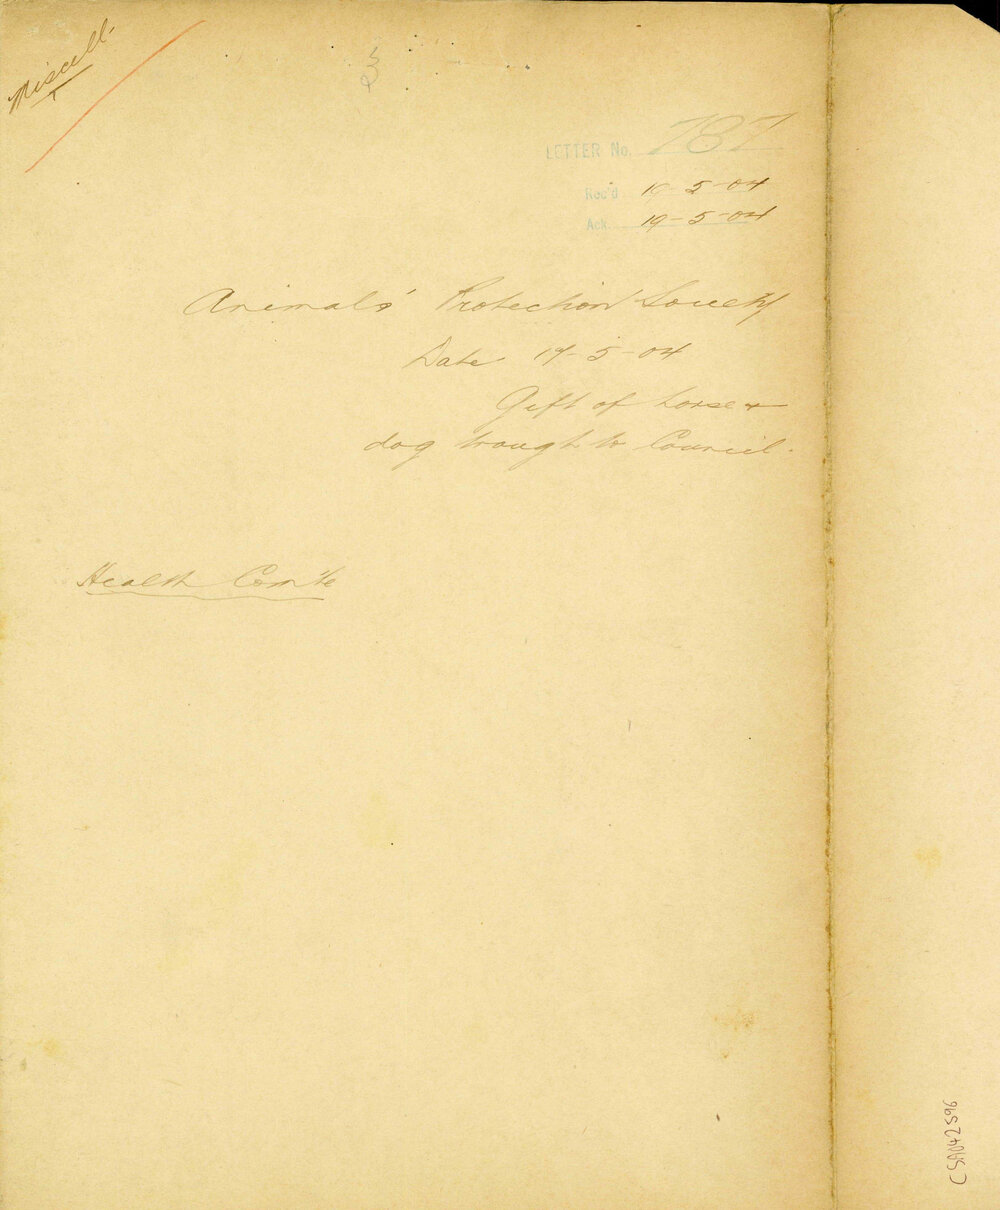 Miscell.
LETTER No. 787
Rec'd 19-5-04
Ack. 19-5-04
Animals' Protection Society
Date 17-5-04
Gift of horse &
dog trough to Council.
Health Com'te
CSA042596